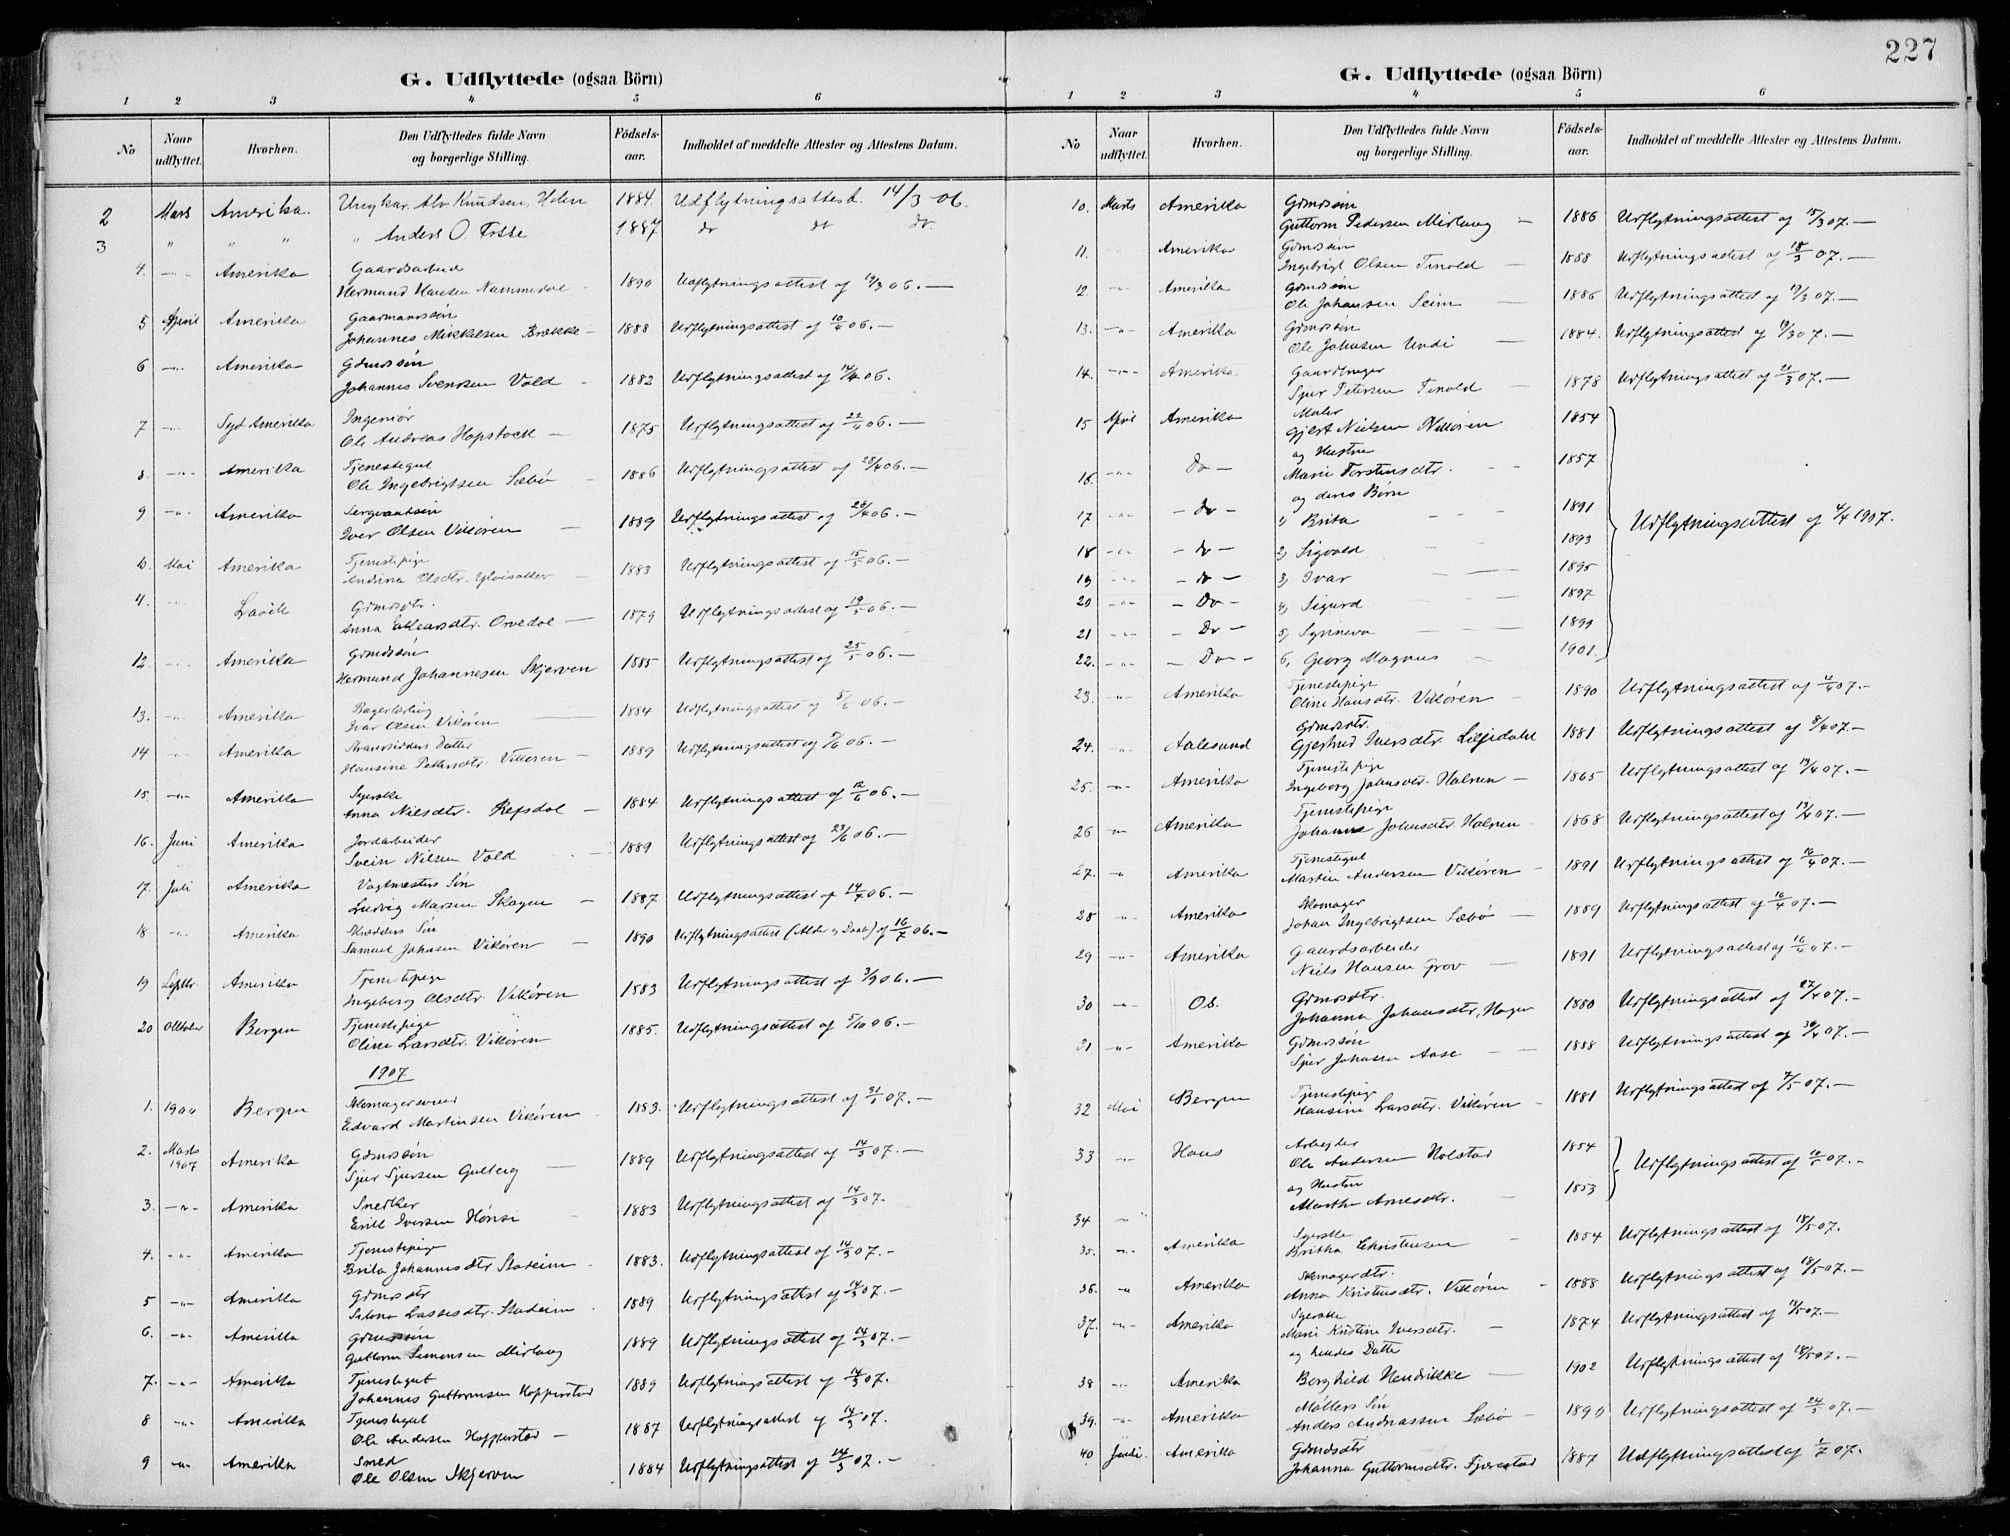 227
G. Udflyttede (ogsaa Börn)
1 2 3 4 5 6
No Naar udflyttet. Hvorhen. Den Udflyttedes fulde Navn og borgerlige Stilling. Födsels-aar. Indholdet af meddelte Attester og Attestens Datum.
2 Mars Amerika. Ungkar. Alv Knudsen, Helen 1884. Udflytningsattest. 14/3 06.
3 " " " " Anders O. Fosse 1887 do do do
4. -"- Amerika Gaardsarbeid
Hermund Hansen Nummedal - 1890 Udflytningsattest af 19/3 06. -
5 April Amerika Gaarmandssøn
Johannes Mikkelsen Brekke - 1888 Udflytningsattest af 10/4 06. -
6 -"- Amerika Gdmdssøn
Johannes Svendsen Vold - 1882 Udflytningsattest af 14/4 06.
7 -"- Syd Amerika Ingeniør
Ole Andreas Hopstock - 1875 Udflytningsattest af 22/4 06. -
8 -"- Amerika Tjenestegut
Ole Ingebrigtsen Sæbø - 1886 Udflytningsattest af 28/4 06. -
9 -"- Amerika Sergeantsøn
Iver Olsen Vikøren - 1889 Udflytningsattest af 28/4 06. -
10 Mai Amerika Tjenestepige
Andrina Olsdtr. Ylvisaker - 1883 Udflytningsattest af 15/5 06. -
11. -"- Lavik Gdmdsdtr.
Anna Orvedal - 1879 Udflytningsattest af 19/5 06. -
12. -"- Amerika Gdmdssøn
Hermund Johannesen Skjerven 1885 Udflytningsattest af 25/5 06. -
13. -"- Amerika Bagerlærling
Ivar Olsen Vikøren - 1884 Udflytningsattest af 5/6 06. -
14 -"- Amerika Strandsidders Datter
Hansine Pettersdtr. Vikøren - 1889 Udflytningsattest af 7/6 06. -
15. -"- Amerika Syerske
Anna Nilsdtr. Refsdal - 1884 Udflytningsattest af 12/6 06. -
16. Juni Amerika Jordarbeider
Svein Nilsen Vold - 1889 Udflytningsattest af 23/6 06. -
17. Juli Amerika Vagtmesters Søn
Ludvig Skagen - 1887 Udflytningsattest af 14/ 06. -
18 -"- Amerika Skredders Søn
Samuel Johnsen Vikøren - 1890 Udflytningsattest (Alder og Daab) af 16/7 06. -
19 Septbr. Amerika Tjenestepige
Ingeborg Olsdtr. Vikøren 1883 Udflytningsattest af 3/9 06. -
20 Oktober Bergen Tjenestepige
Oline Larsdtr. Vikøren 1885. Udflytningsattest af 5/10 06. -
1907
1. 1900 Bergen Skomagersvend
Edvard Martinsen Vikøren 1883. Udflytningsattest af 31/1 07. -
2. Marts 1907 Amerika Gdmdssøn
Sjur Sjursen Gulberg - 1889 Udflytningsattest af 14/3 07. -
3. -"- Amerika Snedker
Erik Iversen Hønsi - 1883 Udflytningsattest af 14/3 07.
4. -"- Amerika Tjenestepige
Brita Johannesdtr Stadeim - 1883. Udflytningsattest af 14/3 07. -
5 -"- Amerika Gdmdsdtr
Lassesdtr. Stadeim - 1889 Udflytningsattest af 14/3 07. -
6. -"- Amerika Gdmdssøn
Guttorm Simonsen Midlang 1889 Udflytningsattest af 14/3 07. -
7. -"- Amerika Tjenestegut
Johannes Guttormsen Hopperstad 1889 Udflytningsattest af 14/3 07.
8 -"- Amerika Tjenestegut
Ole Andersen Hopperstad - 1887 Udflytningsattest af 14/3 07.
9 -"- Amerika Smed
Ole Olsen Skjerven 1884 Udflytningsattest af 14/3 07. -
G. Udflyttede (ogsaa Börn)
1 2 3 4 5 6
No Naar udflyttet. Hvorhen. Den Udflyttedes fulde Navn og borgerlige Stilling. Födsels-aar. Indholdet af meddelte Attester og Attestens Datum.
10. Marts Amerika Gdmdssøn
Guttorm Pedersen Midlang - 1886 Udflytningsattest af 15/3 07. -
11. Amerika Gdmdssøn
Ingebrigt Olsen Tinold - 1888 Udflytningsattest af 18/3 07. -
12. -"- Amerika Gdmdssøn
Ole Johansen Seim - 1886 Udflytningsattest af 19/3 07. -
13. -"- Amerika Gdmdssøn
Ole Johnsen Undi - 1884. Udflytningsattest af 19/3 07. -
14. -"- Amerika Gaardbruger
Sjur Petersen Tinold - 1878 Udflytningsattest af 21/3 07. -
15 April Amerika Maler
Gjert Nielsen Vikøren 1854
og Hustru
16. -"- Do - Marie Torstensdtr. - 1857
og deres Børn
17 -"- - Do - 1) Brita - 1891 Udflytningsattest af 4/4 1907.
18 -"- - Do - 2) Sigvald - 1893
19 -"- - Do - 3) Ivar - 1895
20 -"- - Do - 4) Sigurd - 1897
21 -"- - Do - 5) Synneva - 1899
22. -"- - Do - 6, Georg Magnus - 1901.
23. -"- Amerika Tjenestepige
Oline Hansdtr. Vikøren - 1890 Udflytningsattest af 4/4 07. -
24. -"- Aalesund Gdmdsdtr.
Gjertrud Iversdtr. Liljedahl 1881 Udflytningsattest af 8/4 07. -
25. -"- Amerika Tjenestepige
Ingeborg Johnsdtr. Holven - 1865 Udflytningsattest af 19/4 07. -
26 -"- Amerika Tjenestepige
Johanne Johnsdtr. Holven - 1868 Udflytningsattest af 19/4 07. -
27. -"- Amerika Tjenestegut
Martin Andersen Vikøren - 1891 Udflytningsattest af 16/4 07. -
28 -"- Amerika Skomager
Johan Ingebrigtsen Sæbø - 1889 Udflytningsattest af 16/4 07. -
29 -"- Amerika Gaardsarbeider
Niels Hansen Grov - 1891 Udflytningsattest af 16/4 07. -
30 -"- Os. Gdmdsdtr.
Johanna Johansdtr. Hagen 1880 Udflytningsattest af 27/4 07. -
31 -"- Amerika Gdmdssøn
Sjur Johnsen Aase - 1888 Udflytningsattest af 30/4 07. -
32 Mai Bergen Tjenestepige
Hansine Larsdtr. Vikøren - 1881 Udflytningsattest af 7/5 07. -
33 -"- Haus Arbeider
Ole Andersen Holstad 1854
og Hustru Udflytningsattest af 16/5 07. -
34 -"- Marthe Arnesdtr. - 1853
35. -"- Amerika Syerske
Britha Christensen - 1854 Udflytningsattest af 18/5 07.
36. -"- Amerika Skomagerdtr.
Anna Kristensdtr. Vikøren - 1888 Udflytningsattest af 18/5 07. -
37. -"- Amerika Syerske
Marie Kristine Iversdtr. - 1874 Udflytningsattest af 18/5 07. -
og hendes Datter
38 -"- Amerika Borghild Hendrikke - 1902 Udflytningsattest af 18/5 07. -
39. -"- Amerika Møllers Søn
Anders Andreassen Sæbø - 1890 Udflytningsattest af 24/5 07. -
40 Juli Amerika Gdmdsdtr
Johanna Guttormsdtr. Fjærestad 1887 Udflytningsattest af 1/7 07. -